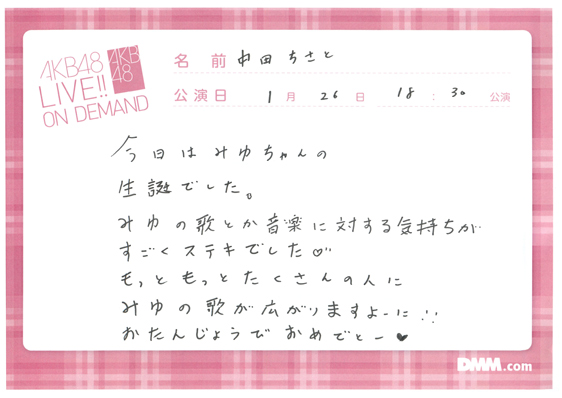 AKB48
LIVE!!
ON DEMAND
AKB
48
名前 中田ちさと
公演日 1月26日 18:30 公演
今日はみゆちゃんの
生誕でした。
みゆの歌とか音楽に対する気持ちが
すごくステキでした♡
もっともっとたくさんの人に
みゆの歌が広がりますよーに∵
おたんじょうびおめでとー♥
DMM.com